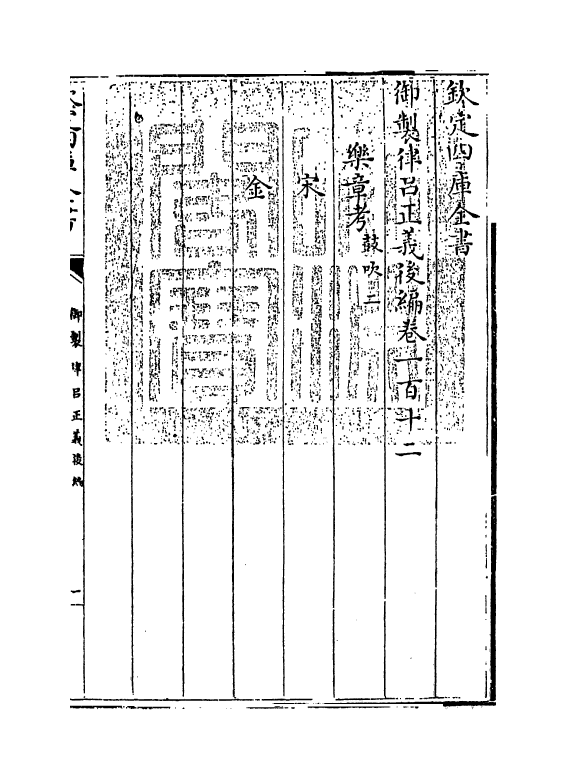 欽定四庫全書
御製律呂正義後編卷一百十二
樂章考鼓吹二
宋
金
御製律呂正義後編
一